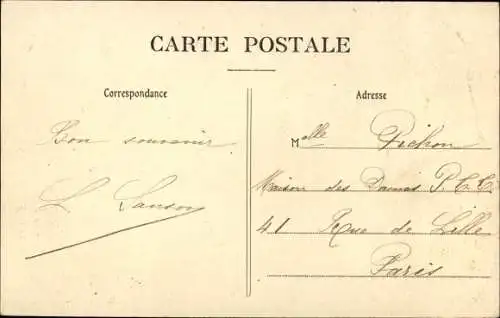 CARTE POSTALE
Correspondance
Adresse
Bon souvenir
L. Sanson
Mlle Pichon
Maison des Dames P.T.T.
41 Rue de Lille
Paris